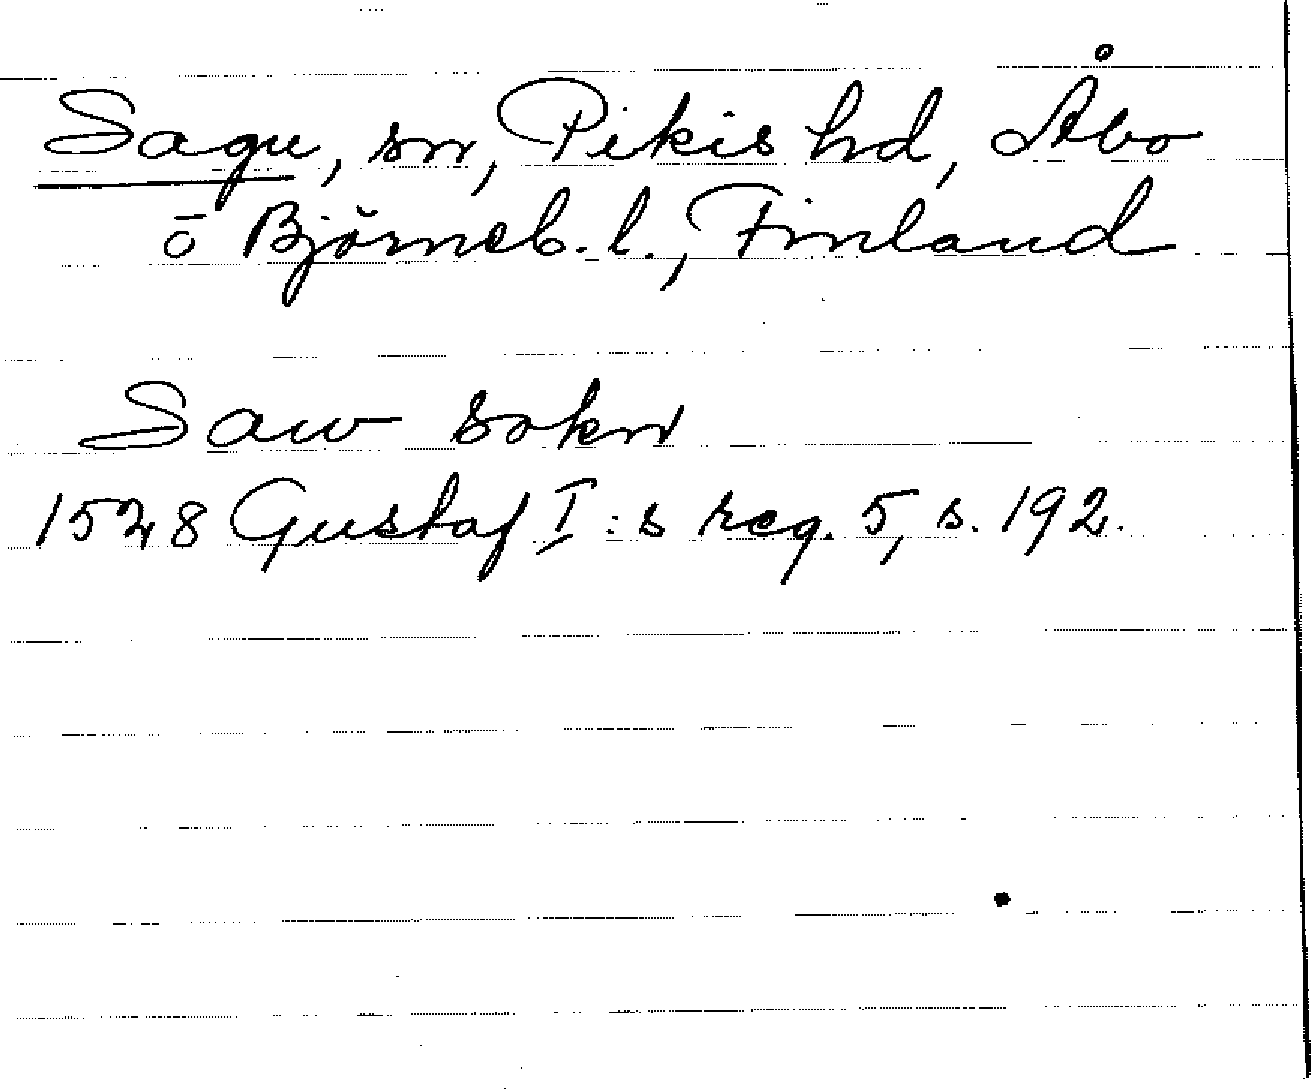 Sagu, sn, Pikis hd, Åbo
o Björneb. l., Finland
Saw sokn
1528 Gustaf I:s reg. 5, s. 192.